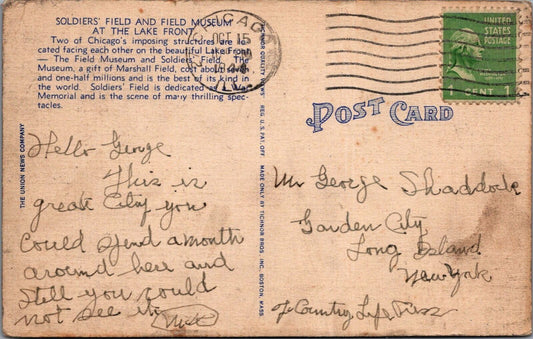 SOLDIERS' FIELD AND FIELD MUSEUM
AT THE LAKE FRONT
Two of Chicago's imposing structures are lo-
cated facing each other on the beautiful Lake Front
— The Field Museum and Soldiers' Field. The
Museum, a gift of Marshall Field, cost about
and one-half millions and is the best of its kind in
the world. Soldiers' Field is dedicated
Memorial and is the scene of many thrilling spec-
tacles.
CHICAGO
OCT 15
ILL.
UNITED
STATES
POSTAGE
1 CENT 1
POST CARD
THE UNION NEWS COMPANY
QUALITY VIEWS REG. U.S. PAT. OFF. MADE ONLY BY TICHNOR BROS. INC., BOSTON, MASS.
Hello George
This is
great City you
Could spend a month
around here and
Still you could
not see it
Mr George Shaddock
Garden City
Long Island
New York
% Country Life Press